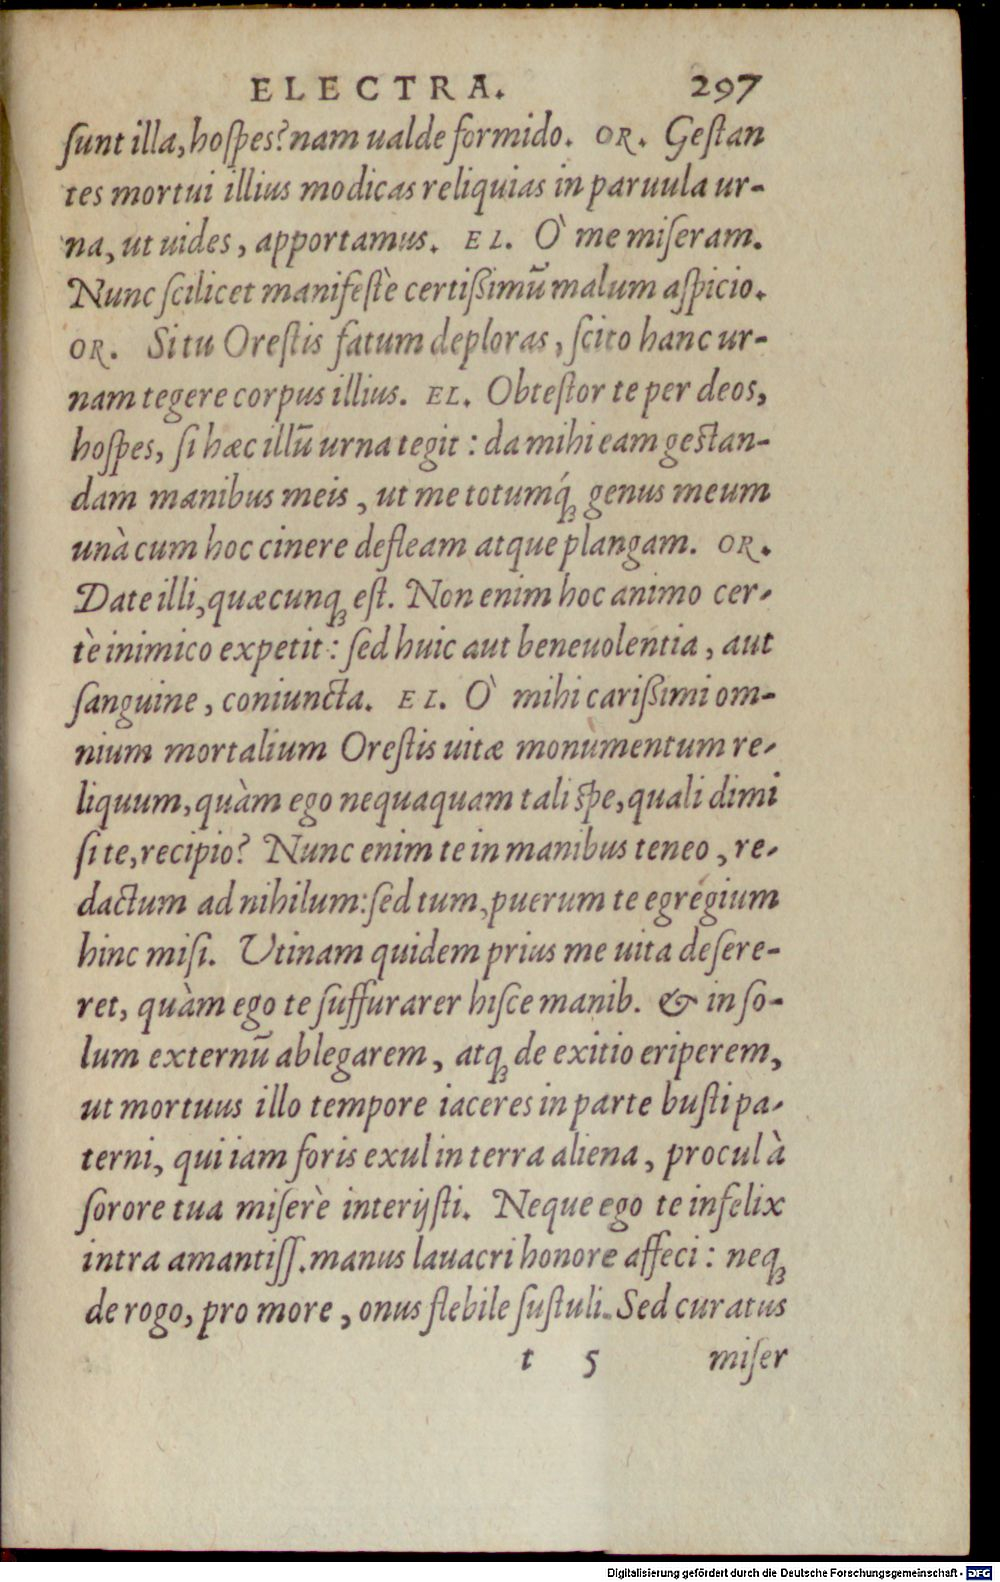 ELECTRA. 297
ſunt illa, hoſpes? nam ualde formido. OR. Geſtan
tes mortui illius modicas reliquias in paruula ur-
na, ut uides, apportamus. EL. Ò me miſeram.
Nunc ſcilicet manifeſtè certißimũ malum aſpicio.
OR. Si tu Oreſtis fatum deploras, ſcito hanc ur-
nam tegere corpus illius. EL. Obteſtor te per deos,
hoſpes, ſi hæc illũ urna tegit: da mihi eam geſtan-
dam manibus meis, ut me totumq́; genus meum
unà cum hoc cinere defleam atque plangam. OR.
Date illi, quæcunq; eſt. Non enim hoc animo cer-
tè inimico expetit: ſed huic aut beneuolentia, aut
ſanguine, coniuncta. EL. Ò mihi carißimi om-
nium mortalium Oreſtis uitæ monumentum re-
liquum, quàm ego nequaquam tali ſpe, quali dimi
ſi te, recipio? Nunc enim te in manibus teneo, re-
dactum ad nihilum: ſed tum, puerum te egregium
hinc miſi. Utinam quidem prius me uita deſere-
ret, quàm ego te ſuffurarer hiſce manib. & in ſo-
lum externũ ablegarem, atq; de exitio eriperem,
ut mortuus illo tempore iaceres in parte buſti pa-
terni, qui iam foris exul in terra aliena, procul à
ſorore tua miſerè interijſti. Neque ego te infelix
intra amantiſſ. manus lauacri honore affeci: neq;
de rogo, pro more, onus flebile ſuſtuli. Sed curatus
t 5 miſer
Digitalisierung gefördert durch die Deutsche Forschungsgemeinschaft - DFG